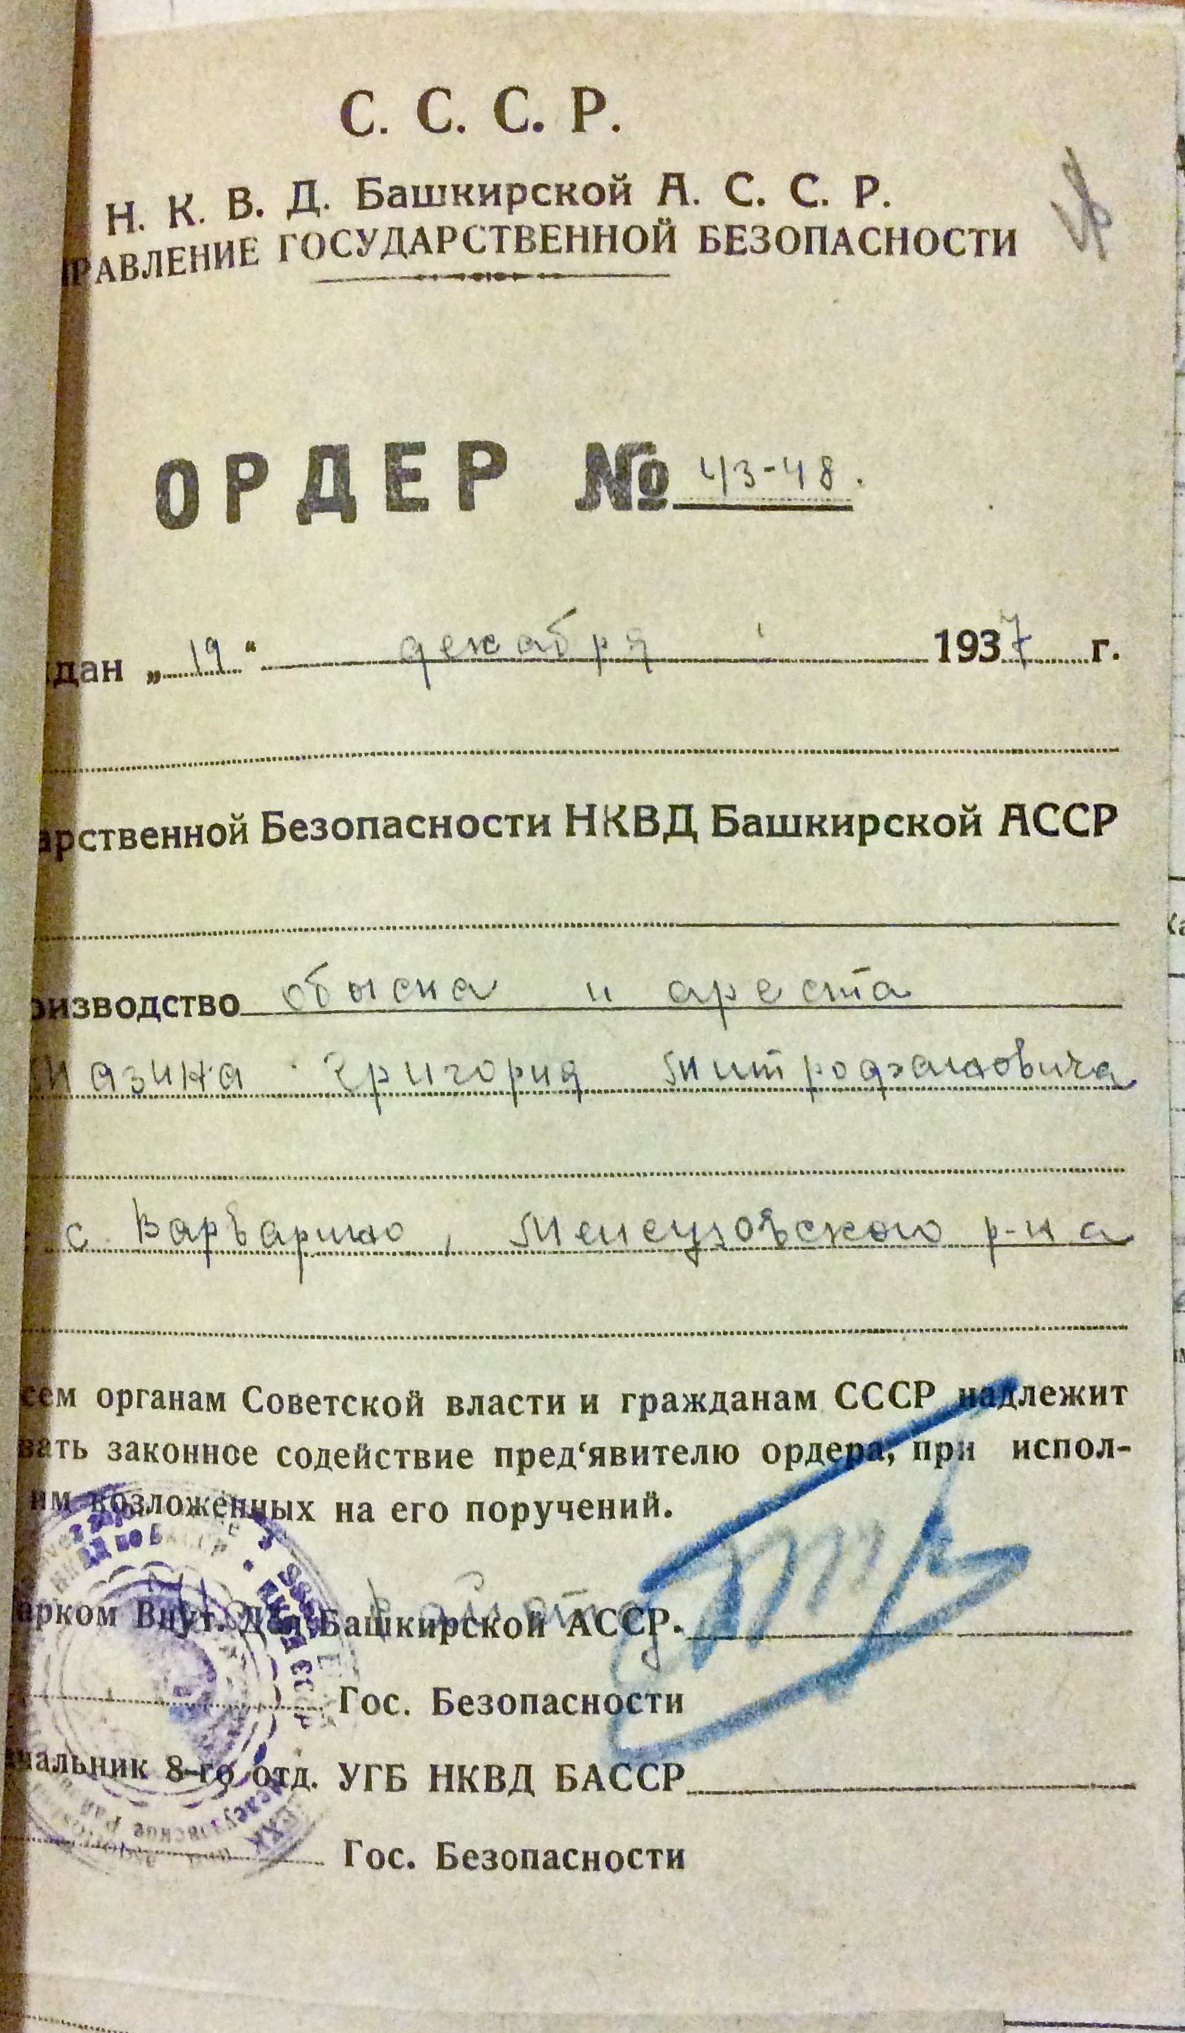 С. С. С. Р.
Н. К. В. Д. Башкирской А. С. С. Р.
РАВЛЕНИЕ ГОСУДАРСТВЕННОЙ БЕЗОПАСНОСТИ
ОРДЕР № 43-48.
дан „19“ декабря 1937 г.
арственной Безопасности НКВД Башкирской АССР
оизводство обыска и ареста
Григория Митрофановича
с Варварино, Мелеузовского р-на
сем органам Советской власти и гражданам СССР надлежит
вать законное содействие пред‘явителю ордера, при испол-
им возложенных на его поручений.
арком Внут. Дел Башкирской АССР.
Гос. Безопасности
чальник 8-го отд. УГБ НКВД БАССР
Гос. Безопасности